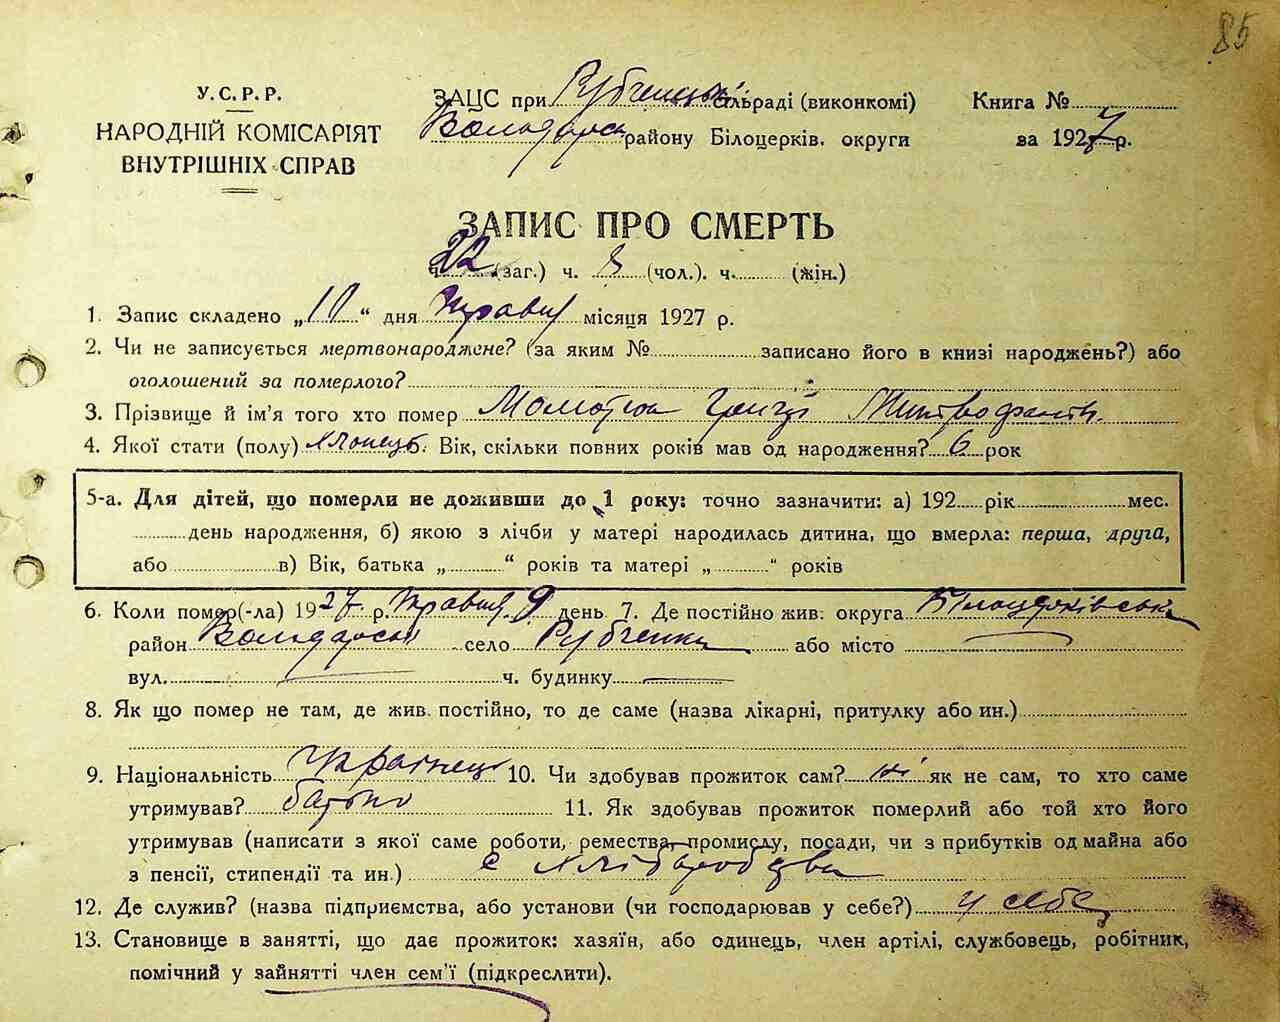 85
У.С.Р.Р.
НАРОДНІЙ КОМІСАРІЯТ
ВНУТРІШНІХ СПРАВ
ЗАЦС при Рубченській сільраді (виконкомі)
Володарськ району Білоцерків. округи
Книга №
за 1927 р.
ЗАПИС ПРО СМЕРТЬ
ч. 22 (заг.) ч. 8 (чол.). ч. (жін.)
1. Запис складено „10“ дня Травня місяця 1927 р.
2. Чи не записується мертвонароджене? (за яким № записано його в книзі народжень?) або
оголошений за померлого?
3. Прізвище й ім'я того хто помер Грицц Митрофанів.
4. Якої стати (полу) хлопець Вік, скільки повних років мав од народження? 6 рок
5-а. Для дітей, що померли не доживши до 1 року: точно зазначити: а) 192 рік мес.
день народження, б) якою з лічби у матері народилась дитина, що вмерла: перша, друга,
або в) Вік, батька „ “ років та матері „ “ років
6. Коли помер(-ла) 1927 р. Травня 9 день 7. Де постійно жив: округа Білоцерківська
район Володарськ село Рубченки або місто
вул. ч. будинку
8. Як що помер не там, де жив постійно, то де саме (назва лікарні, притулку або ин.)
9. Національність Українець 10. Чи здобував прожиток сам? ні як не сам, то хто саме
утримував? батько 11. Як здобував прожиток померлий або той хто його
утримував (написати з якої саме роботи, ремества, промислу, посади, чи з прибутків од майна або
з пенсії, стипендії та ин.) с хліборобства
12. Де служив? (назва підприємства, або установи (чи господарював у себе?) у себе
13. Становище в занятті, що дає прожиток: хазяїн, або одинець, член артілі, службовець, робітник,
помічний у зайнятті член сем'ї (підкреслити).